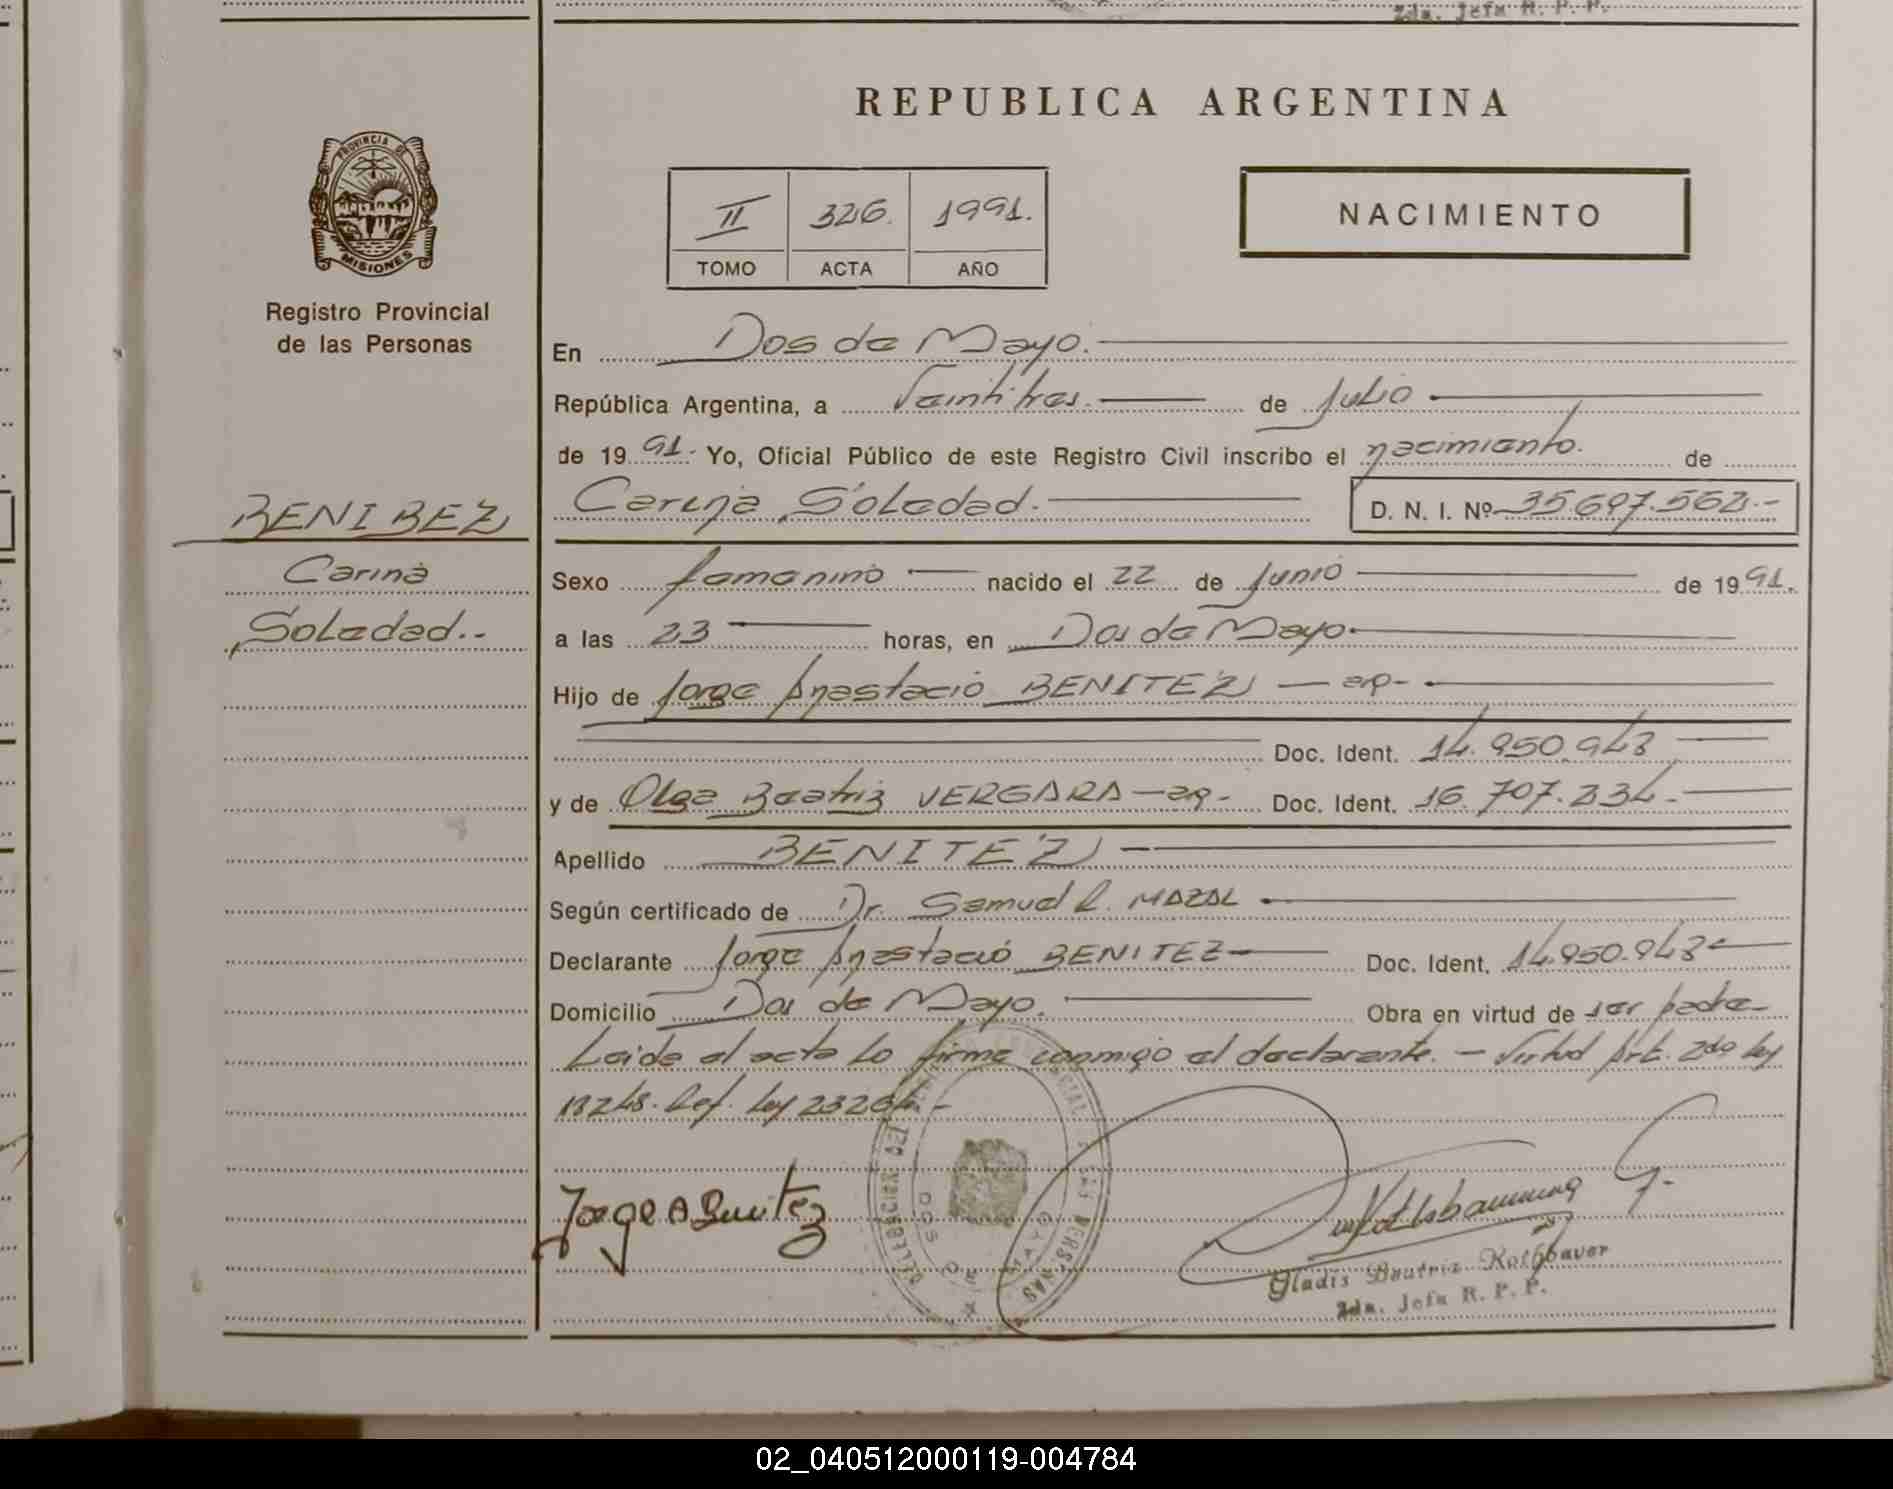 2da. Jefa R. P. P.
REPUBLICA ARGENTINA
PROVINCIA DE
MISIONES
Registro Provincial
de las Personas
II 326. 1991.
TOMO ACTA AÑO
NACIMIENTO
En Dos de Mayo.
República Argentina, a Veintitres. de Julio
de 19 91. Yo, Oficial Público de este Registro Civil inscribo el nacimiento. de
Carina Soledad. D. N. I. Nº 35.697.562.-
BENIBEZ
Carina
Soledad..
Sexo femenino nacido el 22 de Junio de 19 91.
a las 23 horas, en Dos de Mayo
Hijo de Jorge Anastacio BENITEZ - ar-
Doc. Ident. 14.950.943
y de Olga Beatriz VERGARA - ar- Doc. Ident. 16.707.234.-
Apellido BENITEZ
Según certificado de Dr. Samuel R. MAZAL
Declarante Jorge Anastacio BENITEZ Doc. Ident. 14.950.943
Domicilio Dos de Mayo. Obra en virtud de ser padre-
Leida el acta lo firma conmigo el declarante. - Virtud Art. 2do ley
18248. Ref. ley 23264.-
Jorge A Benitez
DELEGACION DEL REGISTRO PROVINCIAL DE LAS PERSONAS
DOS DE MAYO
Gladis Beatriz Rothbauer
2da. Jefa R. P. P.
02_040512000119-004784